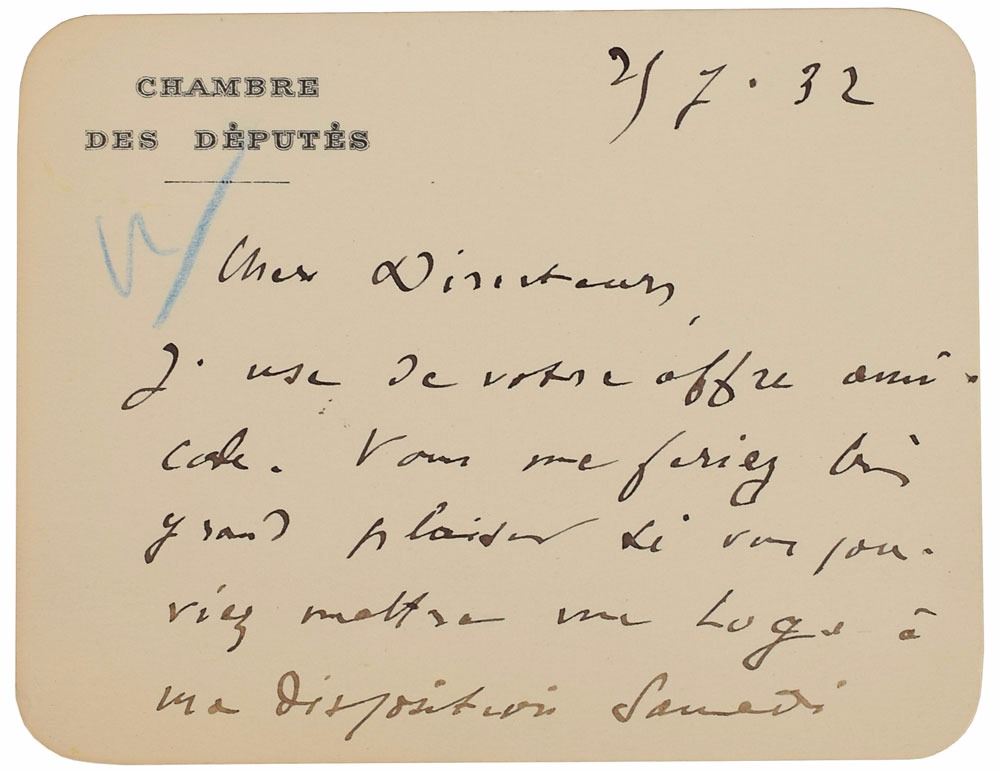 CHAMBRE
DES DÉPUTÉS
7. 32
Cher Directeur,
J'use de votre offre ami-
cale. Vous me feriez
grand plaisir si vous pou-
viez mettre une Loge à
ma disposition Samedi